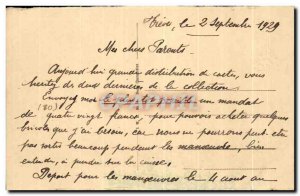 Trèves, le 2 Septembre 1929
Mes chers Parents
Aujourd'hui grande distribution de cartes, vous
héritez de deux dernières de la collection.
Envoyez moi le plus un mandat
(80)
de quatre vingt francs, pour pouvoir acheter quelques
bricoles que j'ai besoin, car nous ne pourrons peut être
pas sortir beaucoup pendant les manœuvres, bien
entendu, à prendre sur la caisse.
Départ pour les manœuvres le 4 courant au